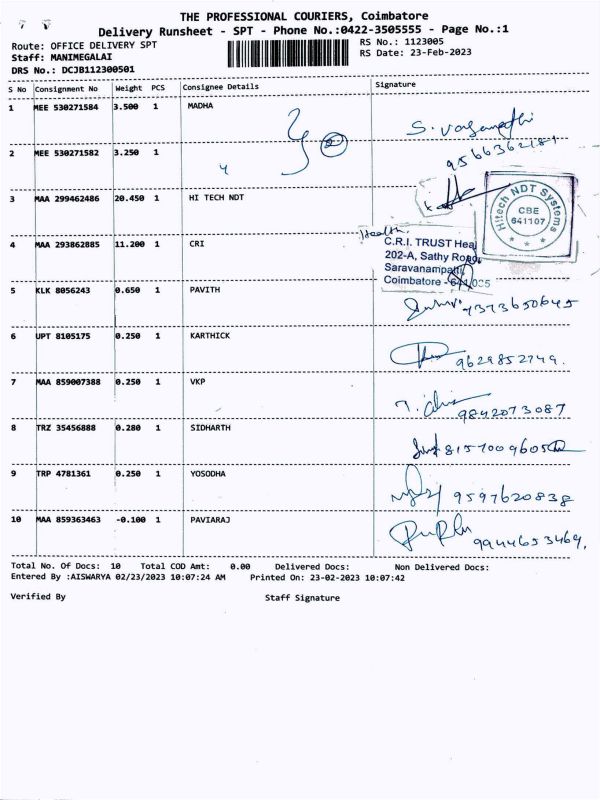 THE PROFESSIONAL COURIERS, Coimbatore
Delivery Runsheet - SPT - Phone No.:0422-3505555 - Page No.:1
Route: OFFICE DELIVERY SPT
Staff: MANIMEGALAI
DRS No.: DCJB112300501
RS No.: 1123005
RS Date: 23-Feb-2023
S No Consignment No Weight PCS Consignee Details Signature
1 MEE 530271584 3.500 1 MADHA
9566362181
2 MEE 530271582 3.250 1
3 MAA 299462486 20.450 1 HI TECH NDT
Hitech NDT Systems
CBE
641107
4 MAA 293862885 11.200 1 CRI
Health.
C.R.I. TRUST Heal
202-A, Sathy Road,
Saravanampatti,
Coimbatore - 641035
5 KLK 8056243 0.650 1 PAVITH
7373650645
6 UPT 8105175 0.250 1 KARTHICK
9629852749.
7 MAA 859007388 0.250 1 VKP
9842073087
8 TRZ 35456888 0.280 1 SIDHARTH
8157009605
9 TRP 4781361 0.250 1 YOSODHA
9597620838
10 MAA 859363463 -0.100 1 PAVIARAJ
9944653469,
Total No. Of Docs: 10 Total COD Amt: 0.00 Delivered Docs: Non Delivered Docs:
Entered By :AISWARYA 02/23/2023 10:07:24 AM Printed On: 23-02-2023 10:07:42
Verified By Staff Signature